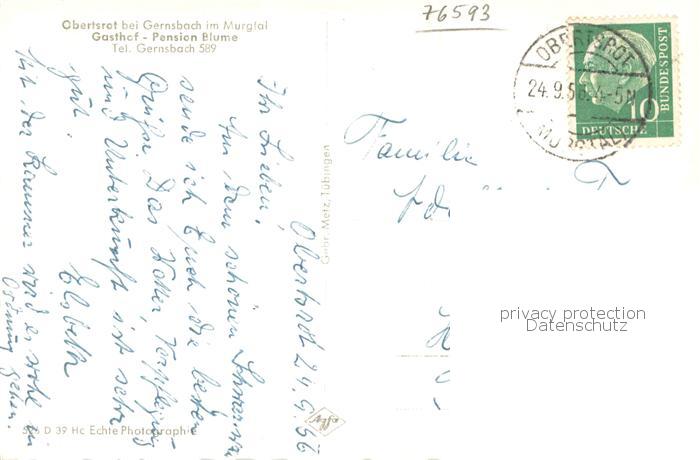 76593
Obertsrot bei Gernsbach im Murgtal
Gasthof - Pension Blume
Tel. Gernsbach 589
OBERTSROT
24.9.56 4-5N
(MURGTAL)
10
DEUTSCHE
BUNDESPOST
Obertsrot 24.9.56
Ihr Lieben!
Aus dem schönen Schwarzw.
sende ich Euch die besten
Grüße. Das Wetter, Verpflegung
und Unterkunft ist sehr
gut.
Elsbeth
Mit der Kammer wird es wohl in
Ordnung gehen.
Familie
Gebr. Metz, Tübingen
privacy protection
Datenschutz
Agfa
D 39 Hc Echte Photographie